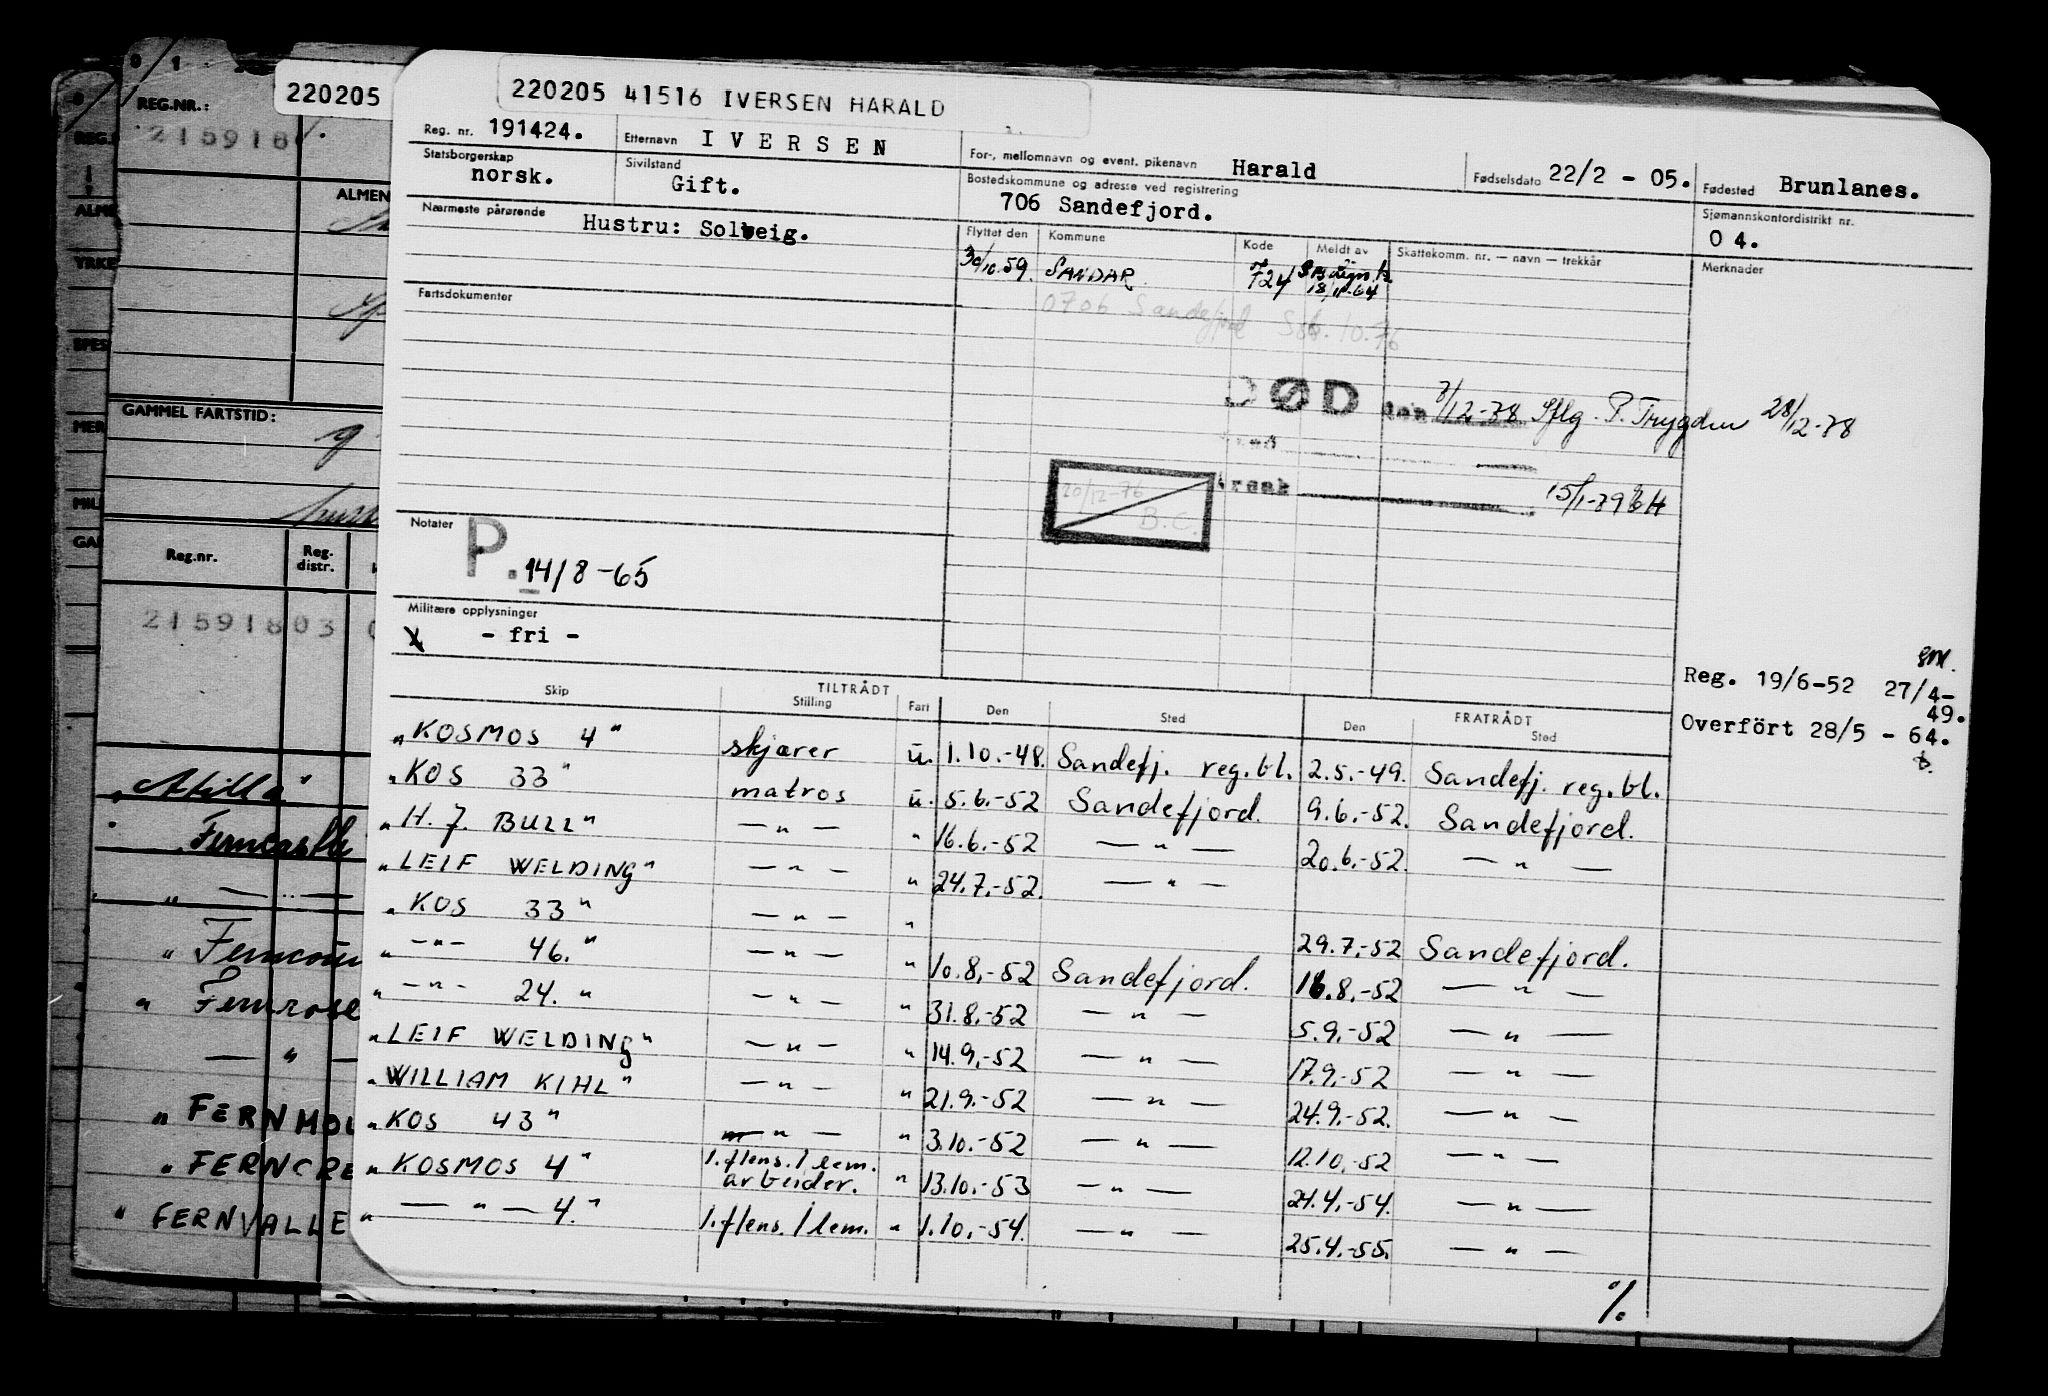 220205
220205 41516 IVERSEN HARALD
REG.NR.:
2159180
Reg. nr. 191424.
Etternavn IVERSEN
For-, mellomnavn og event. pikenavn Harald
Fødselsdato 22/2 - 05.
Fødested Brunlanes.
Statsborgerskap norsk.
Sivilstand Gift.
Bostedskommune og adresse ved registrering 706 Sandefjord.
Sjømannskontordistrikt nr. 04.
Nærmeste pårørende Hustru: Solveig.
Flyttet den Kommune Kode Meldt av Skattekomm. nr. — navn — trekkår
Merknader
30/10.59. SANDAR 724 18/11-64
0706 Sandefjord 10.76
Fartsdokumenter
DØD den 7/12-78 Sflg. P. Trygden 28/12-78
20/12-76 B.C.
15/1-79
Notater
P. 14/8-65
Militære opplysninger
X - fri -
Reg. 19/6-52 27/4-49.
Overfört 28/5 - 64.
ALMEN
GAMMEL FARTSTID:
Reg.nr. Reg. distr.
21591803
TILTRÅDT FRATRÅDT
Skip Stilling Fart Den Sted Den Sted
„KOSMOS 4" skjærer u. 1.10.-48. Sandefj. reg.bl. 2.5.-49. Sandefj. reg.bl.
„KOS 33" matros u. 5.6.-52 Sandefjord. 9.6.-52. Sandefjord.
„H.J. BULL" — " — " 16.6.-52 — " — 20.6.-52. — " —
„LEIF WELDING" — " — " 24.7.-52. — " —
„KOS 33" — " — " 29.7.-52 Sandefjord.
„ — " — 46." — " — " 10.8.-52 Sandefjord. 16.8.-52 — " —
„ — " — 24." — " — " 31.8.-52 — " — 5.9.-52 — " —
„LEIF WELDING" — " — " 14.9.-52 — " — 17.9.-52 — " —
„WILLIAM KIHL" — " — " 21.9.-52 — " — 24.9.-52. — " —
„KOS 43" — " — " 3.10.-52 — " — 12.10.-52 — " —
„KOSMOS 4" 1. flens./lem. arbeider. " 13.10.-53 — " — 24.4.-54. — " —
„ — " — 4." 1. flens./lem. " 1.10.-54. — " — 25.4.-55. — " —
%
„Atilla"
„Ferncastle
„ — " —
„Ferncou
„Fernrose
— " —
„FERNMOL
„FERNCRE
„FERNVALLE